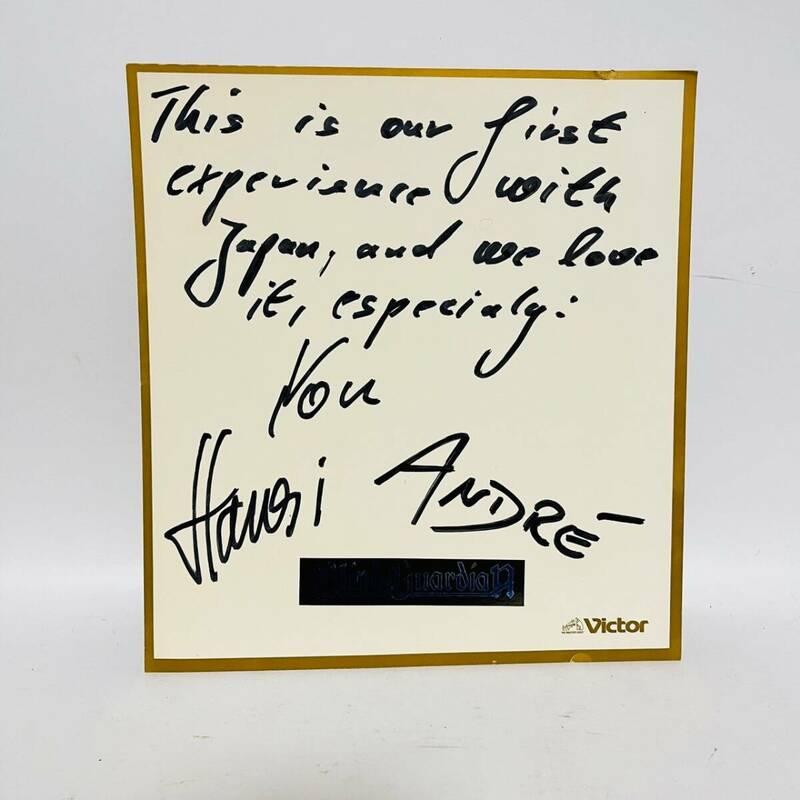 This is our first
experience with
Japan, and we love
it, especialy:
You
Hansi ANDRÉ
Blind Guardian
Victor